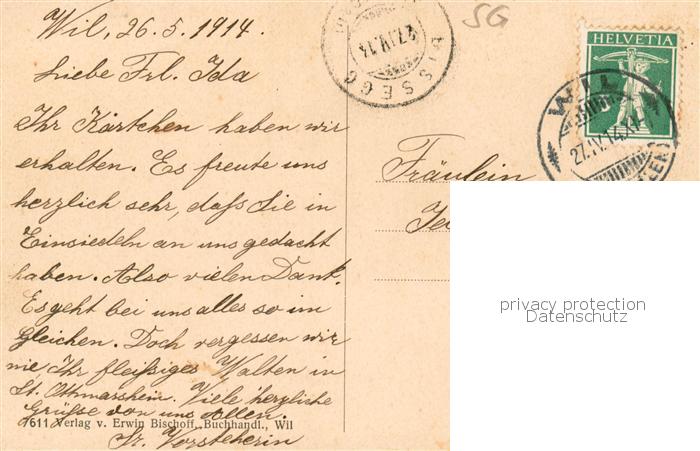 Wil, 26. 5. 1914.
Liebe Frl. Ida
Ihr Kärtchen haben wir
erhalten. Es freute uns
herzlich sehr, daß Sie in
Einsiedeln an uns gedacht
haben. Also vielen Dank.
Es geht bei uns alles so im
Gleichen. Doch vergessen wir
nie, Ihr fleißiges Walten in
St. Othmarsheim. Viele herzliche
Grüße von uns Allen.
7611 Verlag v. Erwin Bischoff, Buchhandl., Wil
Sr. Vorsteherin
27.IV.14
SG
HELVETIA
WIL
27.IV.14.11
Fräulein
privacy protection
Datenschutz